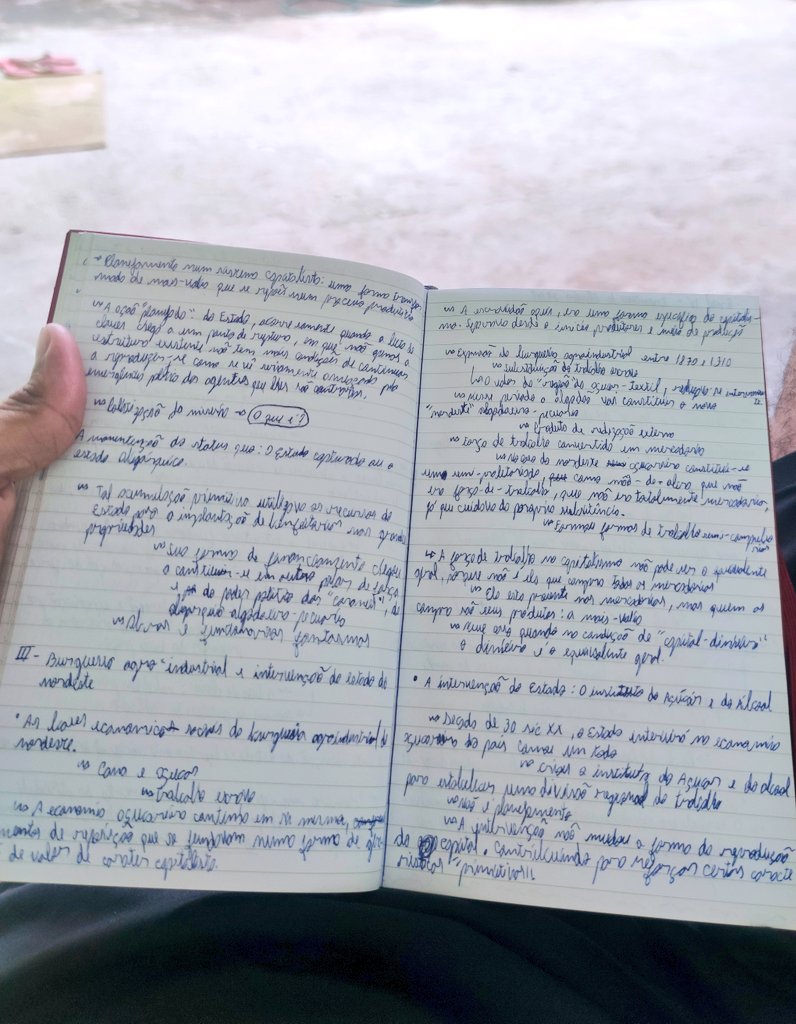 → Planejamento num sistema capitalista: uma forma transfor
mada de mais-valia que se repõe num processo produtivo
↳ A ação "planejada" do Estado, ocorre somente quando a luta de
classes chega a um ponto de ruptura, em que não apenas a
estrutura existente não tem mais condições de continuar
a reproduzir-se como se vê seriamente ameaçada pela
emergência política dos agentes que lhes são contrários.
↳ Cotização da miséria → O que é?
A manutenção do status quo: O Estado capturado ou o
estado oligárquico.
↳ Tal acumulação primitiva utilizava os recursos do
Estado para a implantação de nas grandes
propriedades
↳ Sua forma de funcionamento chegou
a constituir-se em outro pilar de força
e do poder político dos "coronéis", da
oligarquia algodoeira-pecuária
↳ Obras e fantasmas
III - Burguesia agro-industrial e intervenção do estado do
nordeste
• As bases econômicas sociais da burguesia agroindustrial do
nordeste.
↳ Cana e açúcar
↳ trabalho escravo
↳ A economia açucareira continha em si mesma,
de reposição que se fundavam numa forma de
de valor de caráter capitalista
↳ A escravidão aqui, era uma forma específica do capitalis
mo. Separa desde o início produtores e meios de produção
↳ Expansão da burguesia agroindustrial entre 1870 e 1910
↳ substituição do trabalho escravo
↳ O valor da "região do açucar-têxtil,
↳ nesse período o algodão vai constituir o novo
"nordeste" algodoeiro-pecuário
↳ Produto da redivisão externa
↳ Força de trabalho convertida em mercadoria
↳ no nordeste açucareiro constitui-se
um semi-proletariado como mão-de-obra que não
era força-de-trabalho, que não era totalmente mercadoria,
já que cuidava da própria subsistência.
↳ Formar formas de trabalho semi-compulsó
rias
↳ A força de trabalho no capitalismo não pode ser o equivalente
geral, porque não é ela que compra todas as mercadorias
↳ Ela está presente nas mercadorias, mas quem as
compra são seus produtos: a mais-valia
↳ nesse caso quando na condição de "capital-dinheiro"
o dinheiro é o equivalente geral.
• A intervenção do Estado: O instituto do Açúcar e do Álcool
↳ Década de 30 séc XX, o Estado intervirá na economia
açucareira do país como um todo
↳ criar o instituto do Açucar e do alcool
para estabelecer uma divisão regional do trabalho
↳ não é planejamento
↳ A intervenção não mudou a forma da reprodução
do capital. Contribuindo para reforçar certas caracte
rísticas "primitivas"